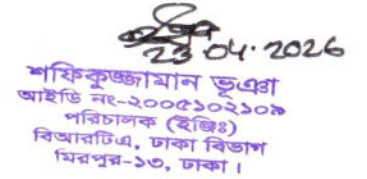 23 04. 2026
শফিকুজ্জামান ভূঞা
আইডি নং-২০০৫১০২১০৯
পরিচালক (ইঞ্জিঃ)
বিআরটিএ, ঢাকা বিভাগ
মিরপুর-১৩, ঢাকা।